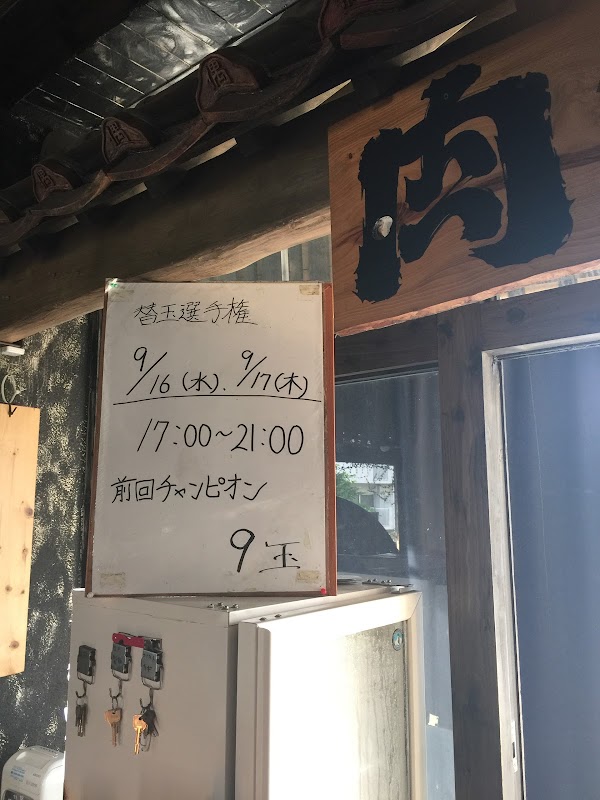 肉
替玉選手権
9/16(水). 9/17(木)
17:00~21:00
前回チャンピオン
9玉